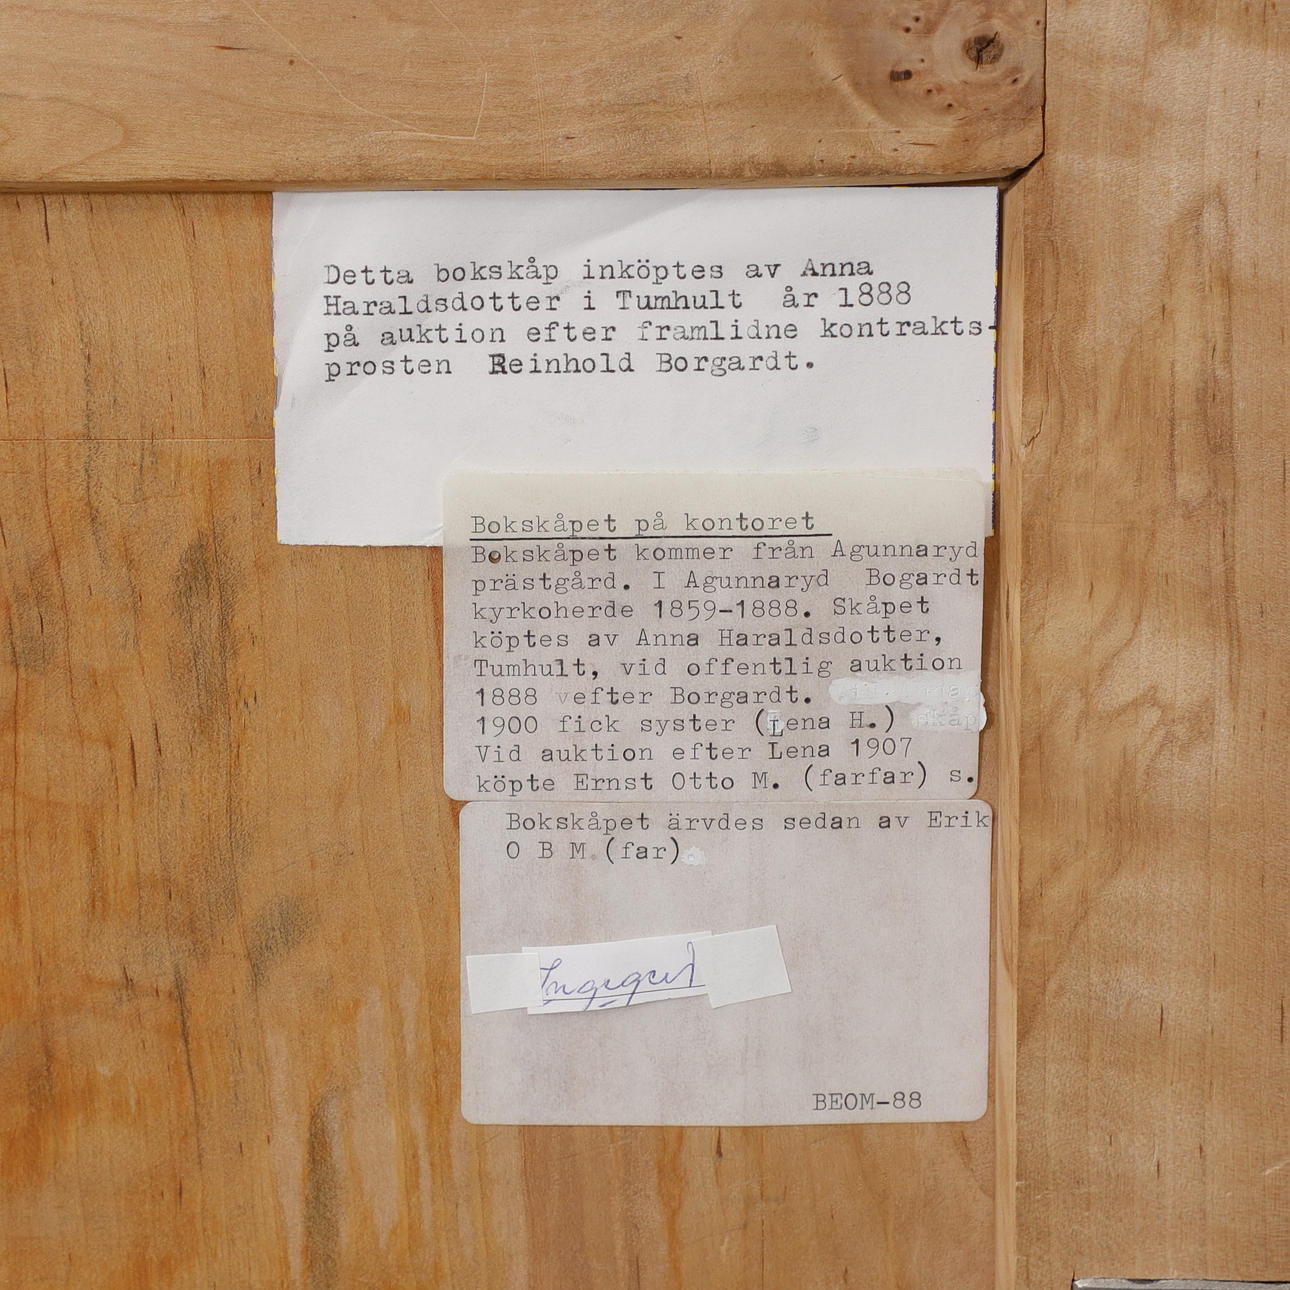 Detta bokskåp inköptes av Anna
Haraldsdotter i Tumhult år 1888
på auktion efter framlidne kontrakts-
prosten Reinhold Borgardt.
Bokskåpet på kontoret
Bokskåpet kommer från Agunnaryd
prästgård. I Agunnaryd Bogardt
kyrkoherde 1859-1888. Skåpet
köptes av Anna Haraldsdotter,
Tumhult, vid offentlig auktion
1888 vefter Borgardt.
1900 fick syster (Lena H.) skåp
Vid auktion efter Lena 1907
köpte Ernst Otto M. (farfar) s.
Bokskåpet ärvdes sedan av Erik
O B M.(far)
Ingegerd
BEOM-88